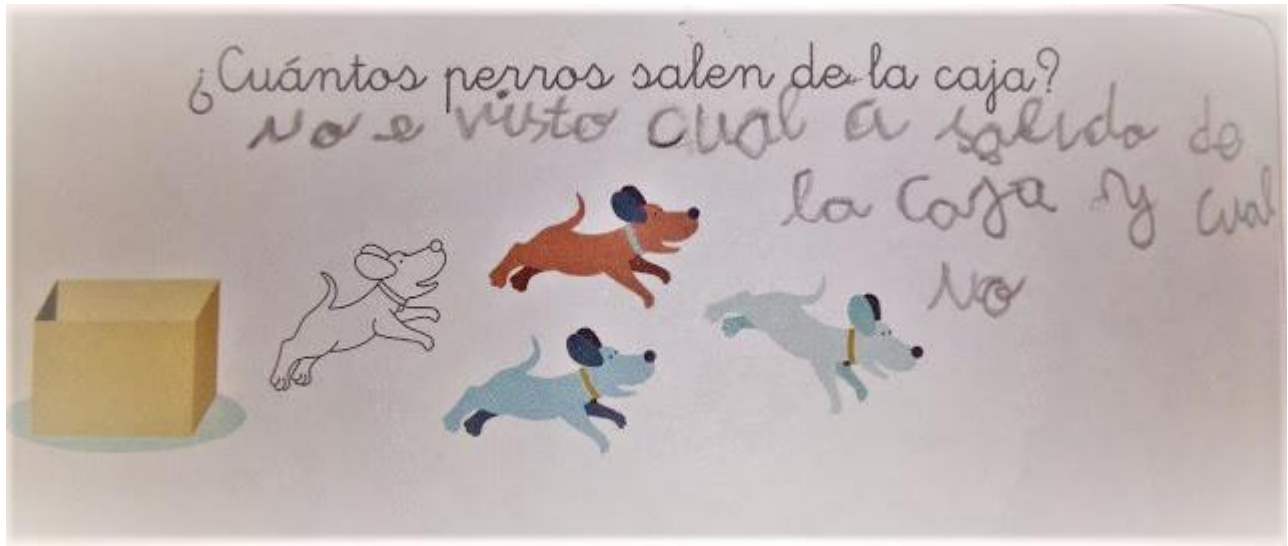 ¿Cuántos perros salen de la caja?
No e visto cual a salido de
la caja y cual
No